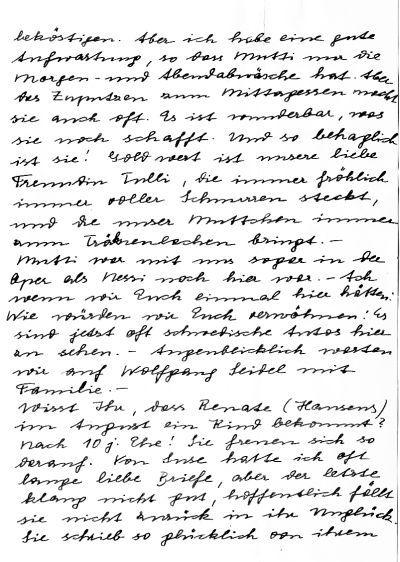 beköstigen. Aber ich habe eine gute
Aufwartung, so dass Mutti nur die
Morgen- und Abendabwäsche hat. Aber
das Zuputzen zum Mittagessen macht
sie auch oft. Es ist wunderbar, was
sie noch schafft. Und so behaglich
ist sie! Gold wert ist unsere liebe
Freundin Tulli, die immer fröhlich
immer voller Schnurren steckt,
und die unser Muttchen immer
zum Tränenlachen bringt. –
Mutti war mit uns sogar in der
Oper als Nessi noch hier war. – Ach
wenn wir Euch einmal hier hätten!
Wie würden wir Euch verwöhnen! Es
sind jetzt oft schwedische Autos hier
zu sehen. – Augenblicklich warten
wir auf Wolfgang Seidel mit
Familie. –
Wisst Ihr, dass Renate (Hansens)
im August ein Kind bekommt?
Nach 10 j. Ehe! Sie freuen sich so
darauf. Von Suse hatte ich oft
lange liebe Briefe, aber der letzte
klang nicht gut, hoffentlich fällt
sie nicht zurück in ihr Unglück.
Sie schrieb so glücklich von ihrem